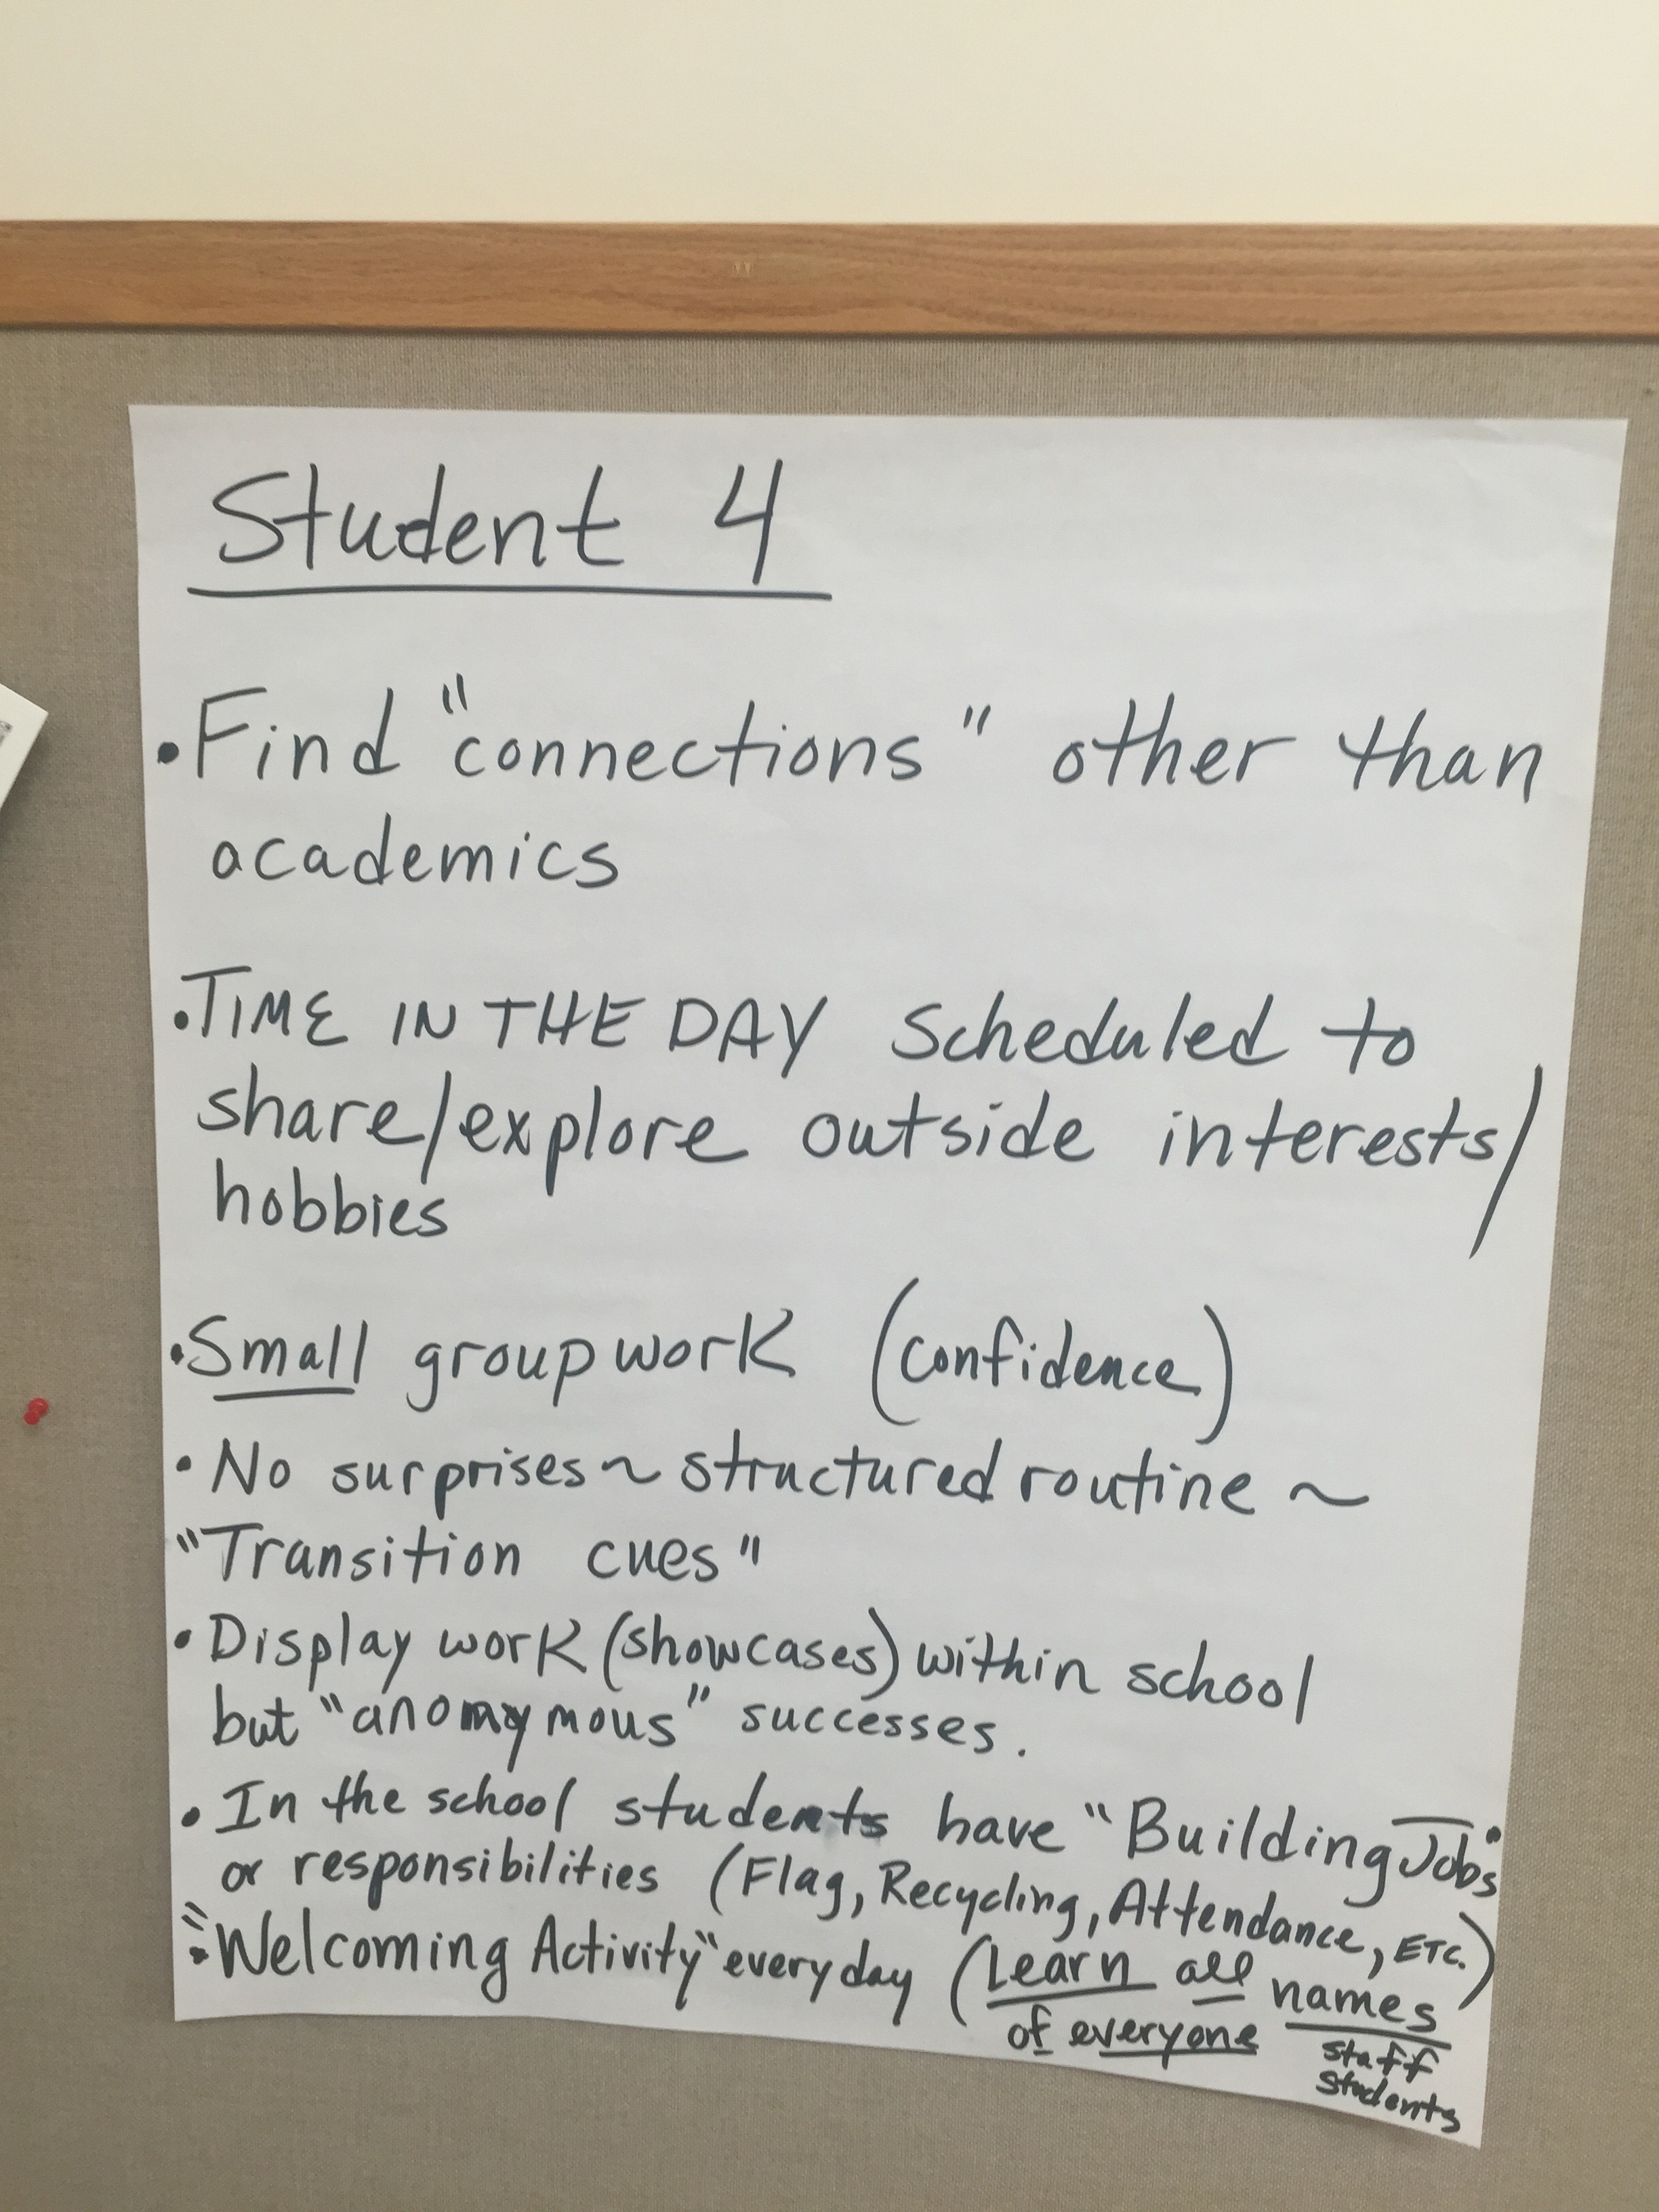 Student 4
• Find "connections" other than
academics
• TIME IN THE DAY scheduled to
share/explore outside interests/
hobbies
• Small group work (confidence)
• No surprises ~ structured routine ~
"Transition cues"
• Display work (showcases) within school
but "anomymous" successes.
• In the school students have "Building Jobs"
or responsibilities (Flag, Recycling, Attendance, ETC.)
• "Welcoming Activity" everyday (Learn all names
of everyone
staff
students